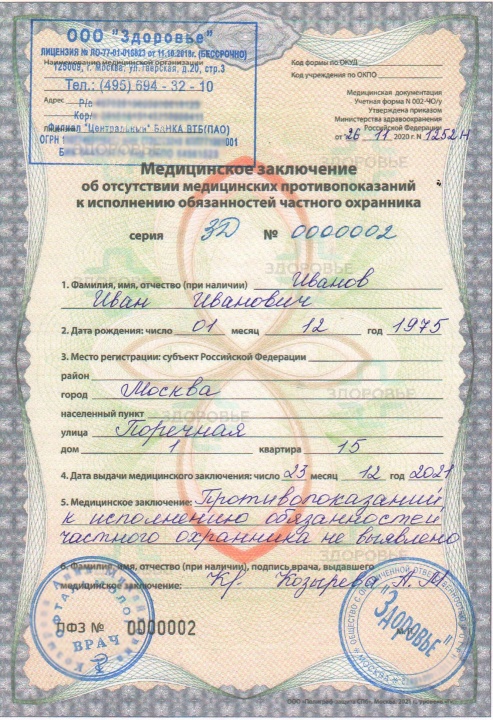 ООО "Здоровье"
ЛИЦЕНЗИЯ № ЛО-77-01-015823 от 11.10.2018г. (БЕССРОЧНО)
Наименование медицинской организации
125009, г. Москва, ул. Тверская, д.20, стр.3
Тел.: (495) 694 - 32 - 10
Адрес Р/с
Кор/
Филиал "Центральный" БАНКА ВТБ(ПАО)
ОГРН 1 001
Код формы по ОКУД
Код учреждения по ОКПО
Медицинская документация
Учетная форма N 002-ЧО/у
Утверждена приказом
Министерства здравоохранения
Российской Федерации
от 26 11 2020 г. N 1252н
Медицинское заключение
об отсутствии медицинских противопоказаний
к исполнению обязанностей частного охранника
серия ЗД № 0000002
1. Фамилия, имя, отчество (при наличии) Иванов
Иван Иванович
2. Дата рождения: число 01 месяц 12 год 1975
3. Место регистрации: субъект Российской Федерации
район
город Москва
населенный пункт
улица Поречная
дом 1 квартира 15
4. Дата выдачи медицинского заключения: число 23 месяц 12 год 2021
5. Медицинское заключение: Противопоказаний
к исполнению обязанностей
частного охранника не выявлено
6. Фамилия, имя, отчество (при наличии), подпись врача, выдавшего
медицинское заключение: Кр. Козырева А. М.
ВРАЧ
ПФЗ № 0000002
"ЗДОРОВЬЕ"
МОСКВА